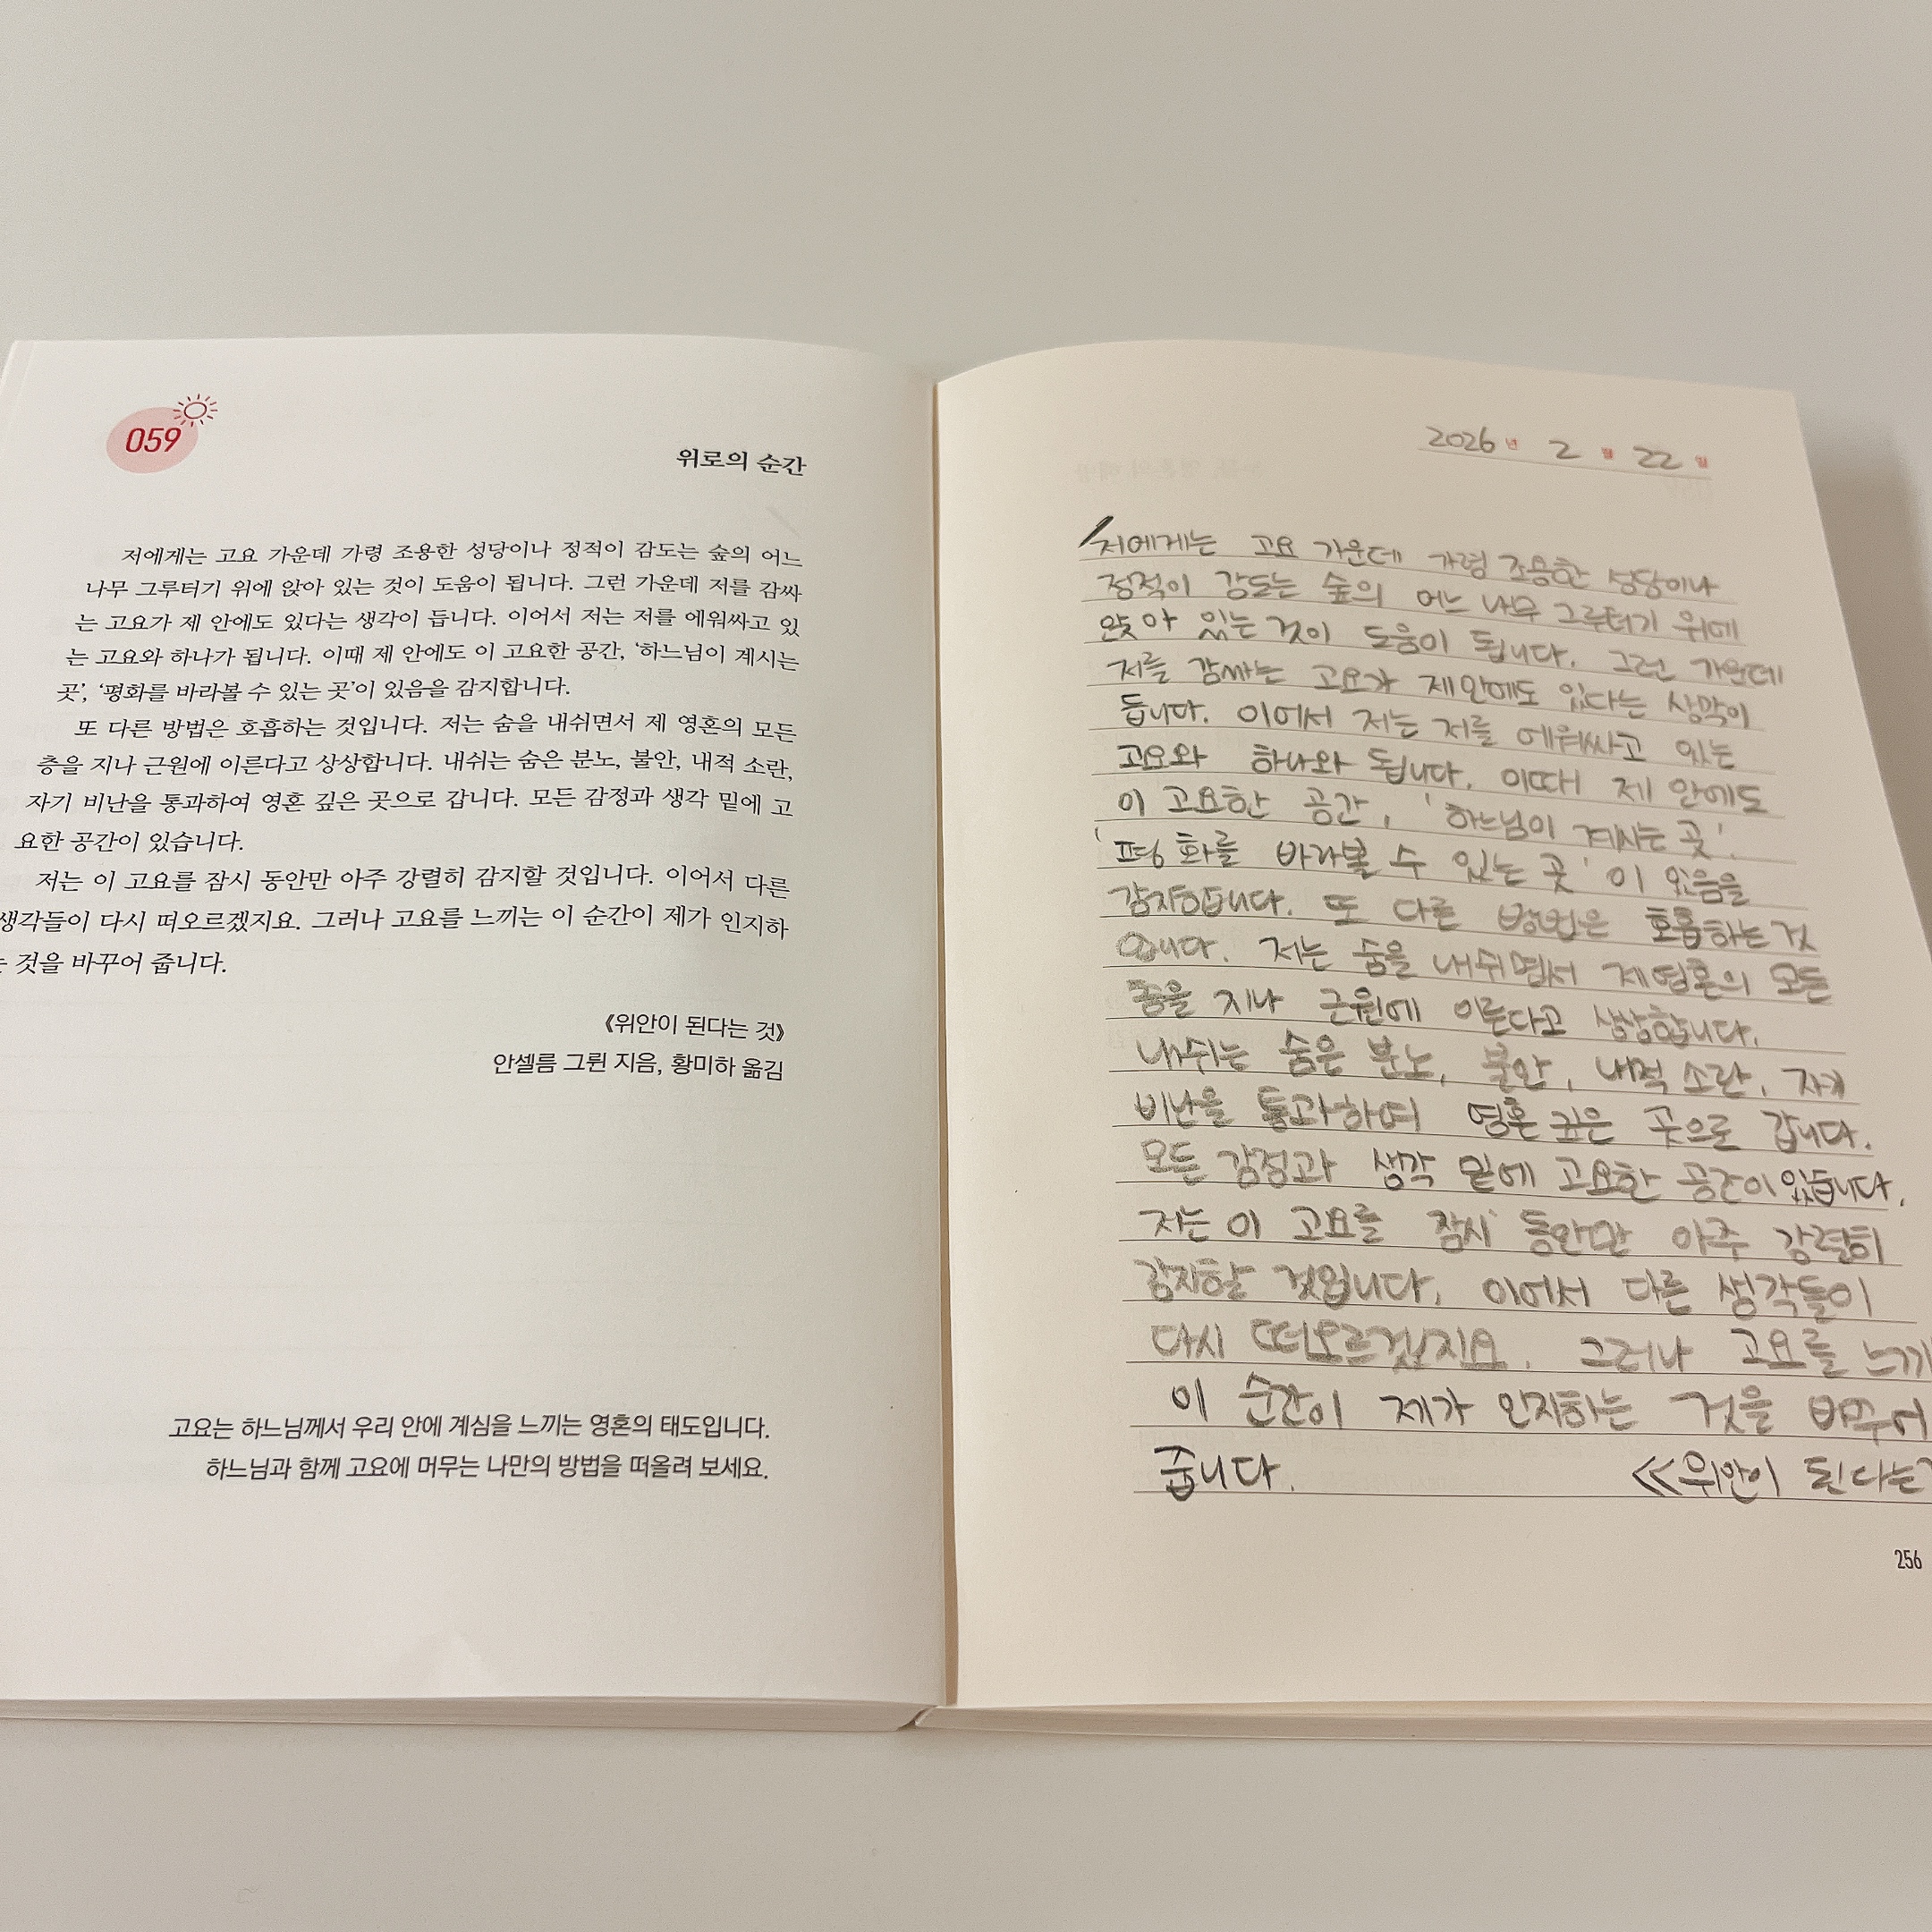 059
위로의 순간
저에게는 고요 가운데 가령 조용한 성당이나 정적이 감도는 숲의 어느
나무 그루터기 위에 앉아 있는 것이 도움이 됩니다. 그런 가운데 저를 감싸
는 고요가 제 안에도 있다는 생각이 듭니다. 이어서 저는 저를 에워싸고 있
는 고요와 하나가 됩니다. 이때 제 안에도 이 고요한 공간, ‘하느님이 계시는
곳’, ‘평화를 바라볼 수 있는 곳’이 있음을 감지합니다.
또 다른 방법은 호흡하는 것입니다. 저는 숨을 내쉬면서 제 영혼의 모든
층을 지나 근원에 이른다고 상상합니다. 내쉬는 숨은 분노, 불안, 내적 소란,
자기 비난을 통과하여 영혼 깊은 곳으로 갑니다. 모든 감정과 생각 밑에 고
요한 공간이 있습니다.
저는 이 고요를 잠시 동안만 아주 강렬히 감지할 것입니다. 이어서 다른
생각들이 다시 떠오르겠지요. 그러나 고요를 느끼는 이 순간이 제가 인지하
것을 바꾸어 줍니다.
《위안이 된다는 것》
안셀름 그륀 지음, 황미하 옮김
고요는 하느님께서 우리 안에 계심을 느끼는 영혼의 태도입니다.
하느님과 함께 고요에 머무는 나만의 방법을 떠올려 보세요.
2026년 2월 22일
저에게는 고요 가운데 가령 조용한 성당이나
정적이 감도는 숲의 어느 나무 그루터기 위에
앉아 있는 것이 도움이 됩니다. 그런 가운데
저를 감싸는 고요가 제안에도 있다는 생각이
듭니다. 이어서 저는 저를 에워싸고 있는
고요와 하나와 됩니다. 이때 제 안에도
이 고요한 공간, '하느님이 계시는 곳'.
'평화를 바라볼 수 있는 곳' 이 있음을
감지합니다. 또 다른 방법은 호흡하는 것
입니다. 저는 숨을 내쉬면서 제 영혼의 모든
층을 지나 근원에 이른다고 상상합니다.
내쉬는 숨은 분노, 불안, 내적 소란, 자기
비난을 통과하여 영혼 깊은 곳으로 갑니다.
모든 감정과 생각 밑에 고요한 공간이 있습니다.
저는 이 고요를 잠시 동안만 아주 강렬히
감지할 것입니다. 이어서 다른 생각들이
다시 떠오르겠지요. 그러나 고요를 느끼
이 순간이 제가 인지하는 것을 바꾸어
줍니다. 《위안이 된다는
256